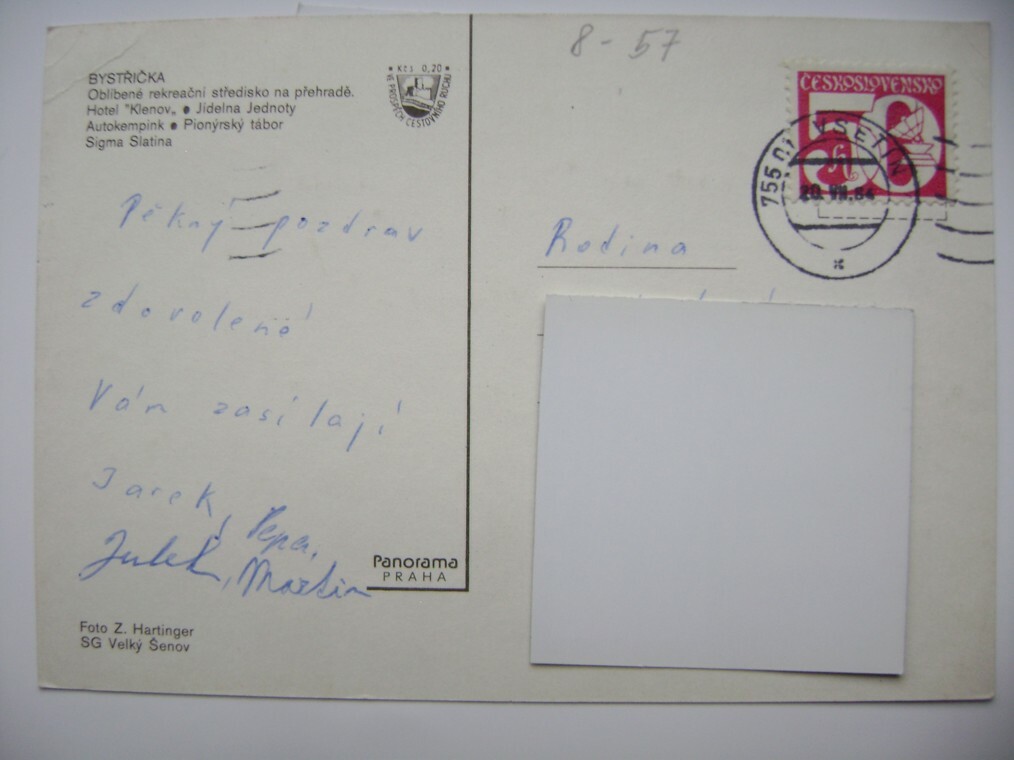 8 - 57
BYSTŘIČKA
Oblíbené rekreační středisko na přehradě.
Hotel "Klenov„ ● Jídelna Jednoty
Autokempink ● Pionýrský tábor
Sigma Slatina
* Kčs 0,20 *
VE PROSPĚCH CESTOVNÍHO RUCHU
ČESKOSLOVENSKO
50
h
755 01 VSETÍN
20. VII. 84
Pěkný pozdrav
z dovolené
Vám zasílají
Jarek, Pepa,
Julek, Martin
Rodina
Panorama
PRAHA
Foto Z. Hartinger
SG Velký Šenov